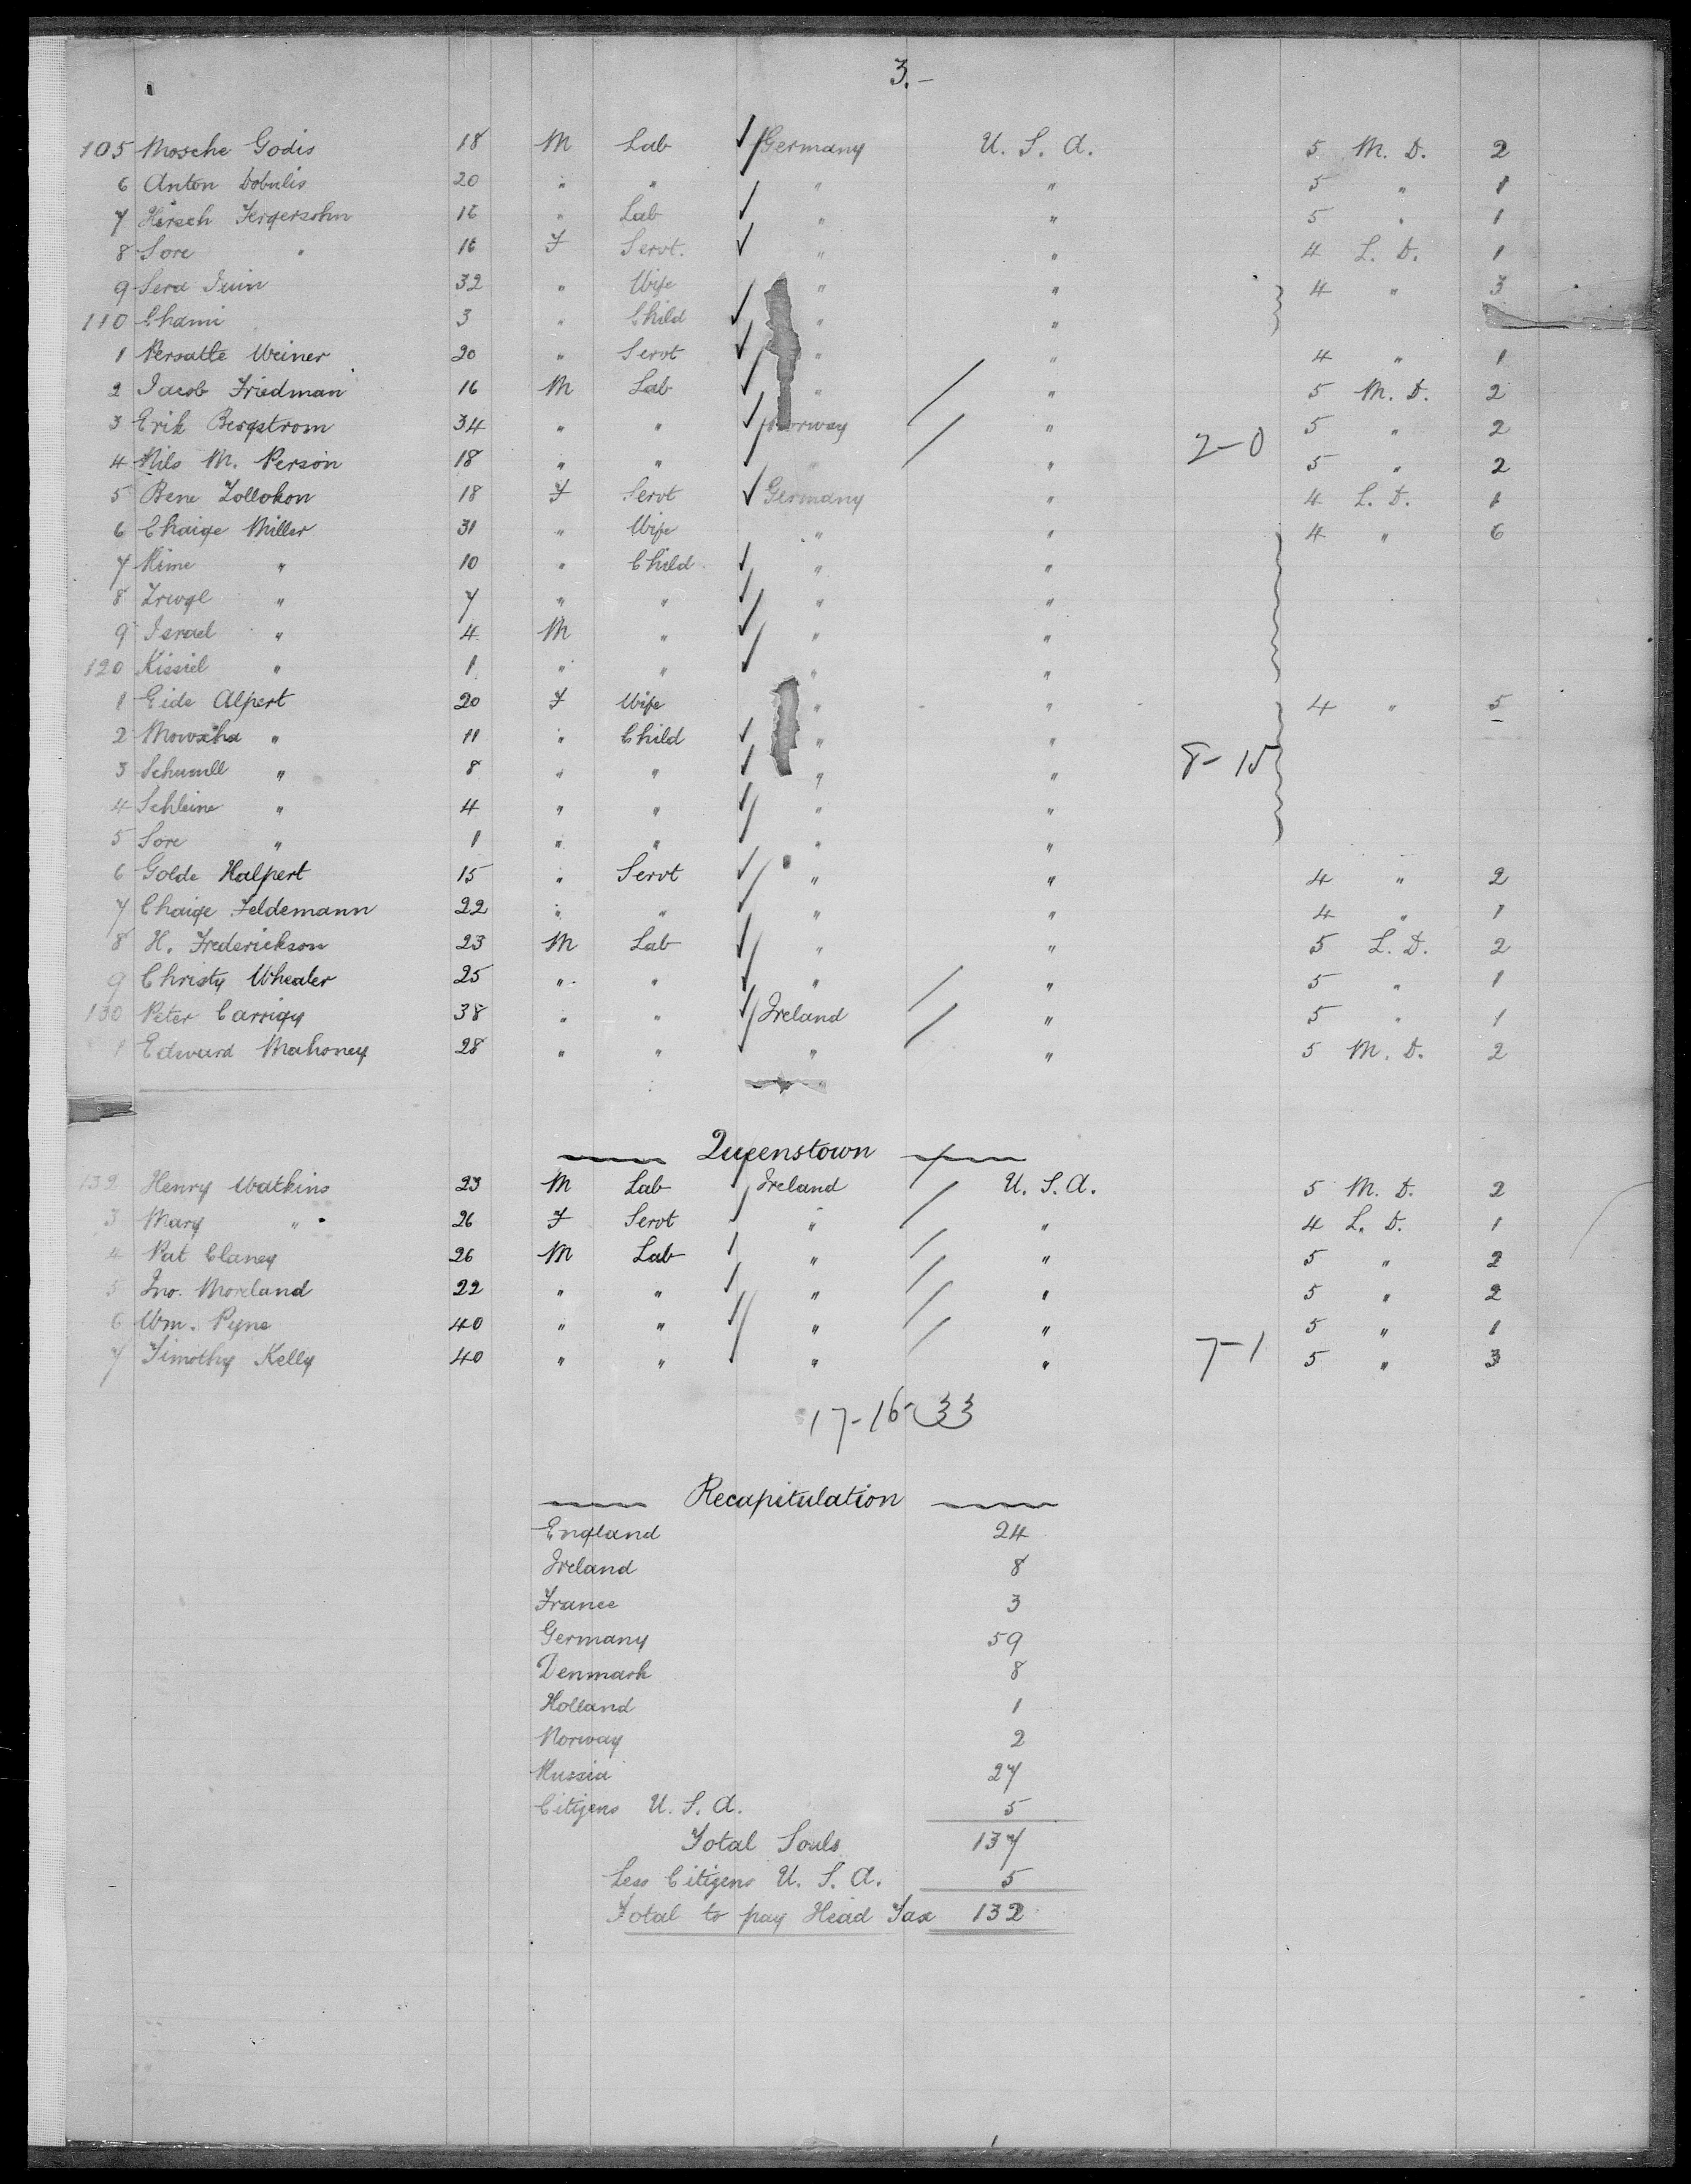 3.-
105 Mosche Godis 18 M Lab Germany U. S. A. 5 M. D. 2
6 Anton Dobulis 20 " " " " 5 " 1
7 Hirsch Jergersohn 16 " Lab " " 5 " 1
8 Sore " 16 F Servt. " " 4 L. D. 1
9 Sera 32 " Wife " " 4 " 3
110 Chami 3 " Child " "
1 Persatte Weiner 20 " Servt " " 4 " 1
2 Jacob Friedman 16 M Lab " " 5 M. D. 2
3 Erik Bergstrom 34 " " Norway " 5 " 2
4 Nils M. Person 18 " " " " 2-0 5 " 2
5 Bene Zollokon 18 F Servt Germany " 4 L. D. 1
6 Chaige Miller 31 " Wife " " 4 " 6
7 Rime " 10 " Child " "
8 " 7 " " " "
9 Israel " 4 M " " "
120 Kissiel " 1 " " " "
1 Eide Alpert 20 F Wife " " 4 " 5
2 Mowscha " 11 " Child " "
3 Schumll " 8 " " " " 8-15
4 Schleine " 4 " " " "
5 Sore " 1 " " " "
6 Golde Halpert 15 " Servt " " 4 " 2
7 Chaige Feldemann 22 " " " " 4 " 1
8 H. Frederickson 23 M Lab " " 5 L. D. 2
9 Christy Whealer 25 " " " " 5 " 1
130 Peter Carrigy 38 " " Ireland " 5 " 1
1 Edward Mahoney 28 " " " " 5 M. D. 2
Queenstown
132 Henry Watkins 23 M Lab Ireland U. S. A. 5 M. D. 2
3 Mary " 26 F Servt " " 4 L. D. 1
4 Pat Clancy 26 M Lab " " 5 " 2
5 Jno. Moreland 22 " " " " 5 " 2
6 Wm. Pyne 40 " " " " 5 " 1
7 Timothy Kelly 40 " " " " 7-1 5 " 3
17-16-33
Recapitulation
England 24
Ireland 8
France 3
Germany 59
Denmark 8
Holland 1
Norway 2
Russia 27
Citizens U. S. A. 5
Total Souls 137
Less Citizens U. S. A. 5
Total to pay Head Tax 132